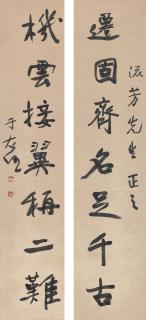 遷固齊名足千古
流芳先生正之
機雲接翼稱二難
于右任